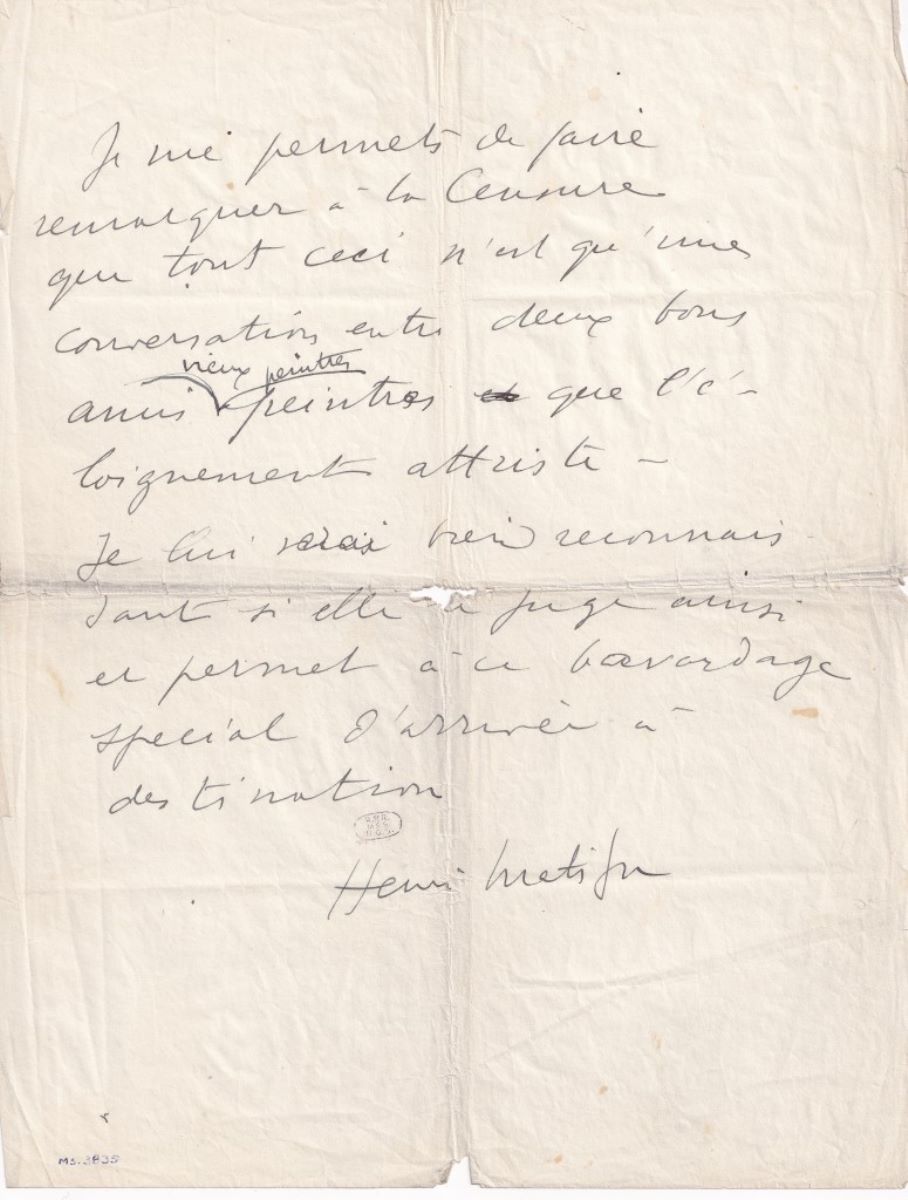 Je me permets de faire
remarquer à la Censure
que tout ceci n'est qu'une
conversation entre deux bons
vieux peintres
amis peintres et que l'é-
loignement attriste -
Je lui serai bien reconnais
sant si elle en juge ainsi
et permet à ce bavardage
spécial d'arriver à
destination
Henri Matisse
MS. 3835